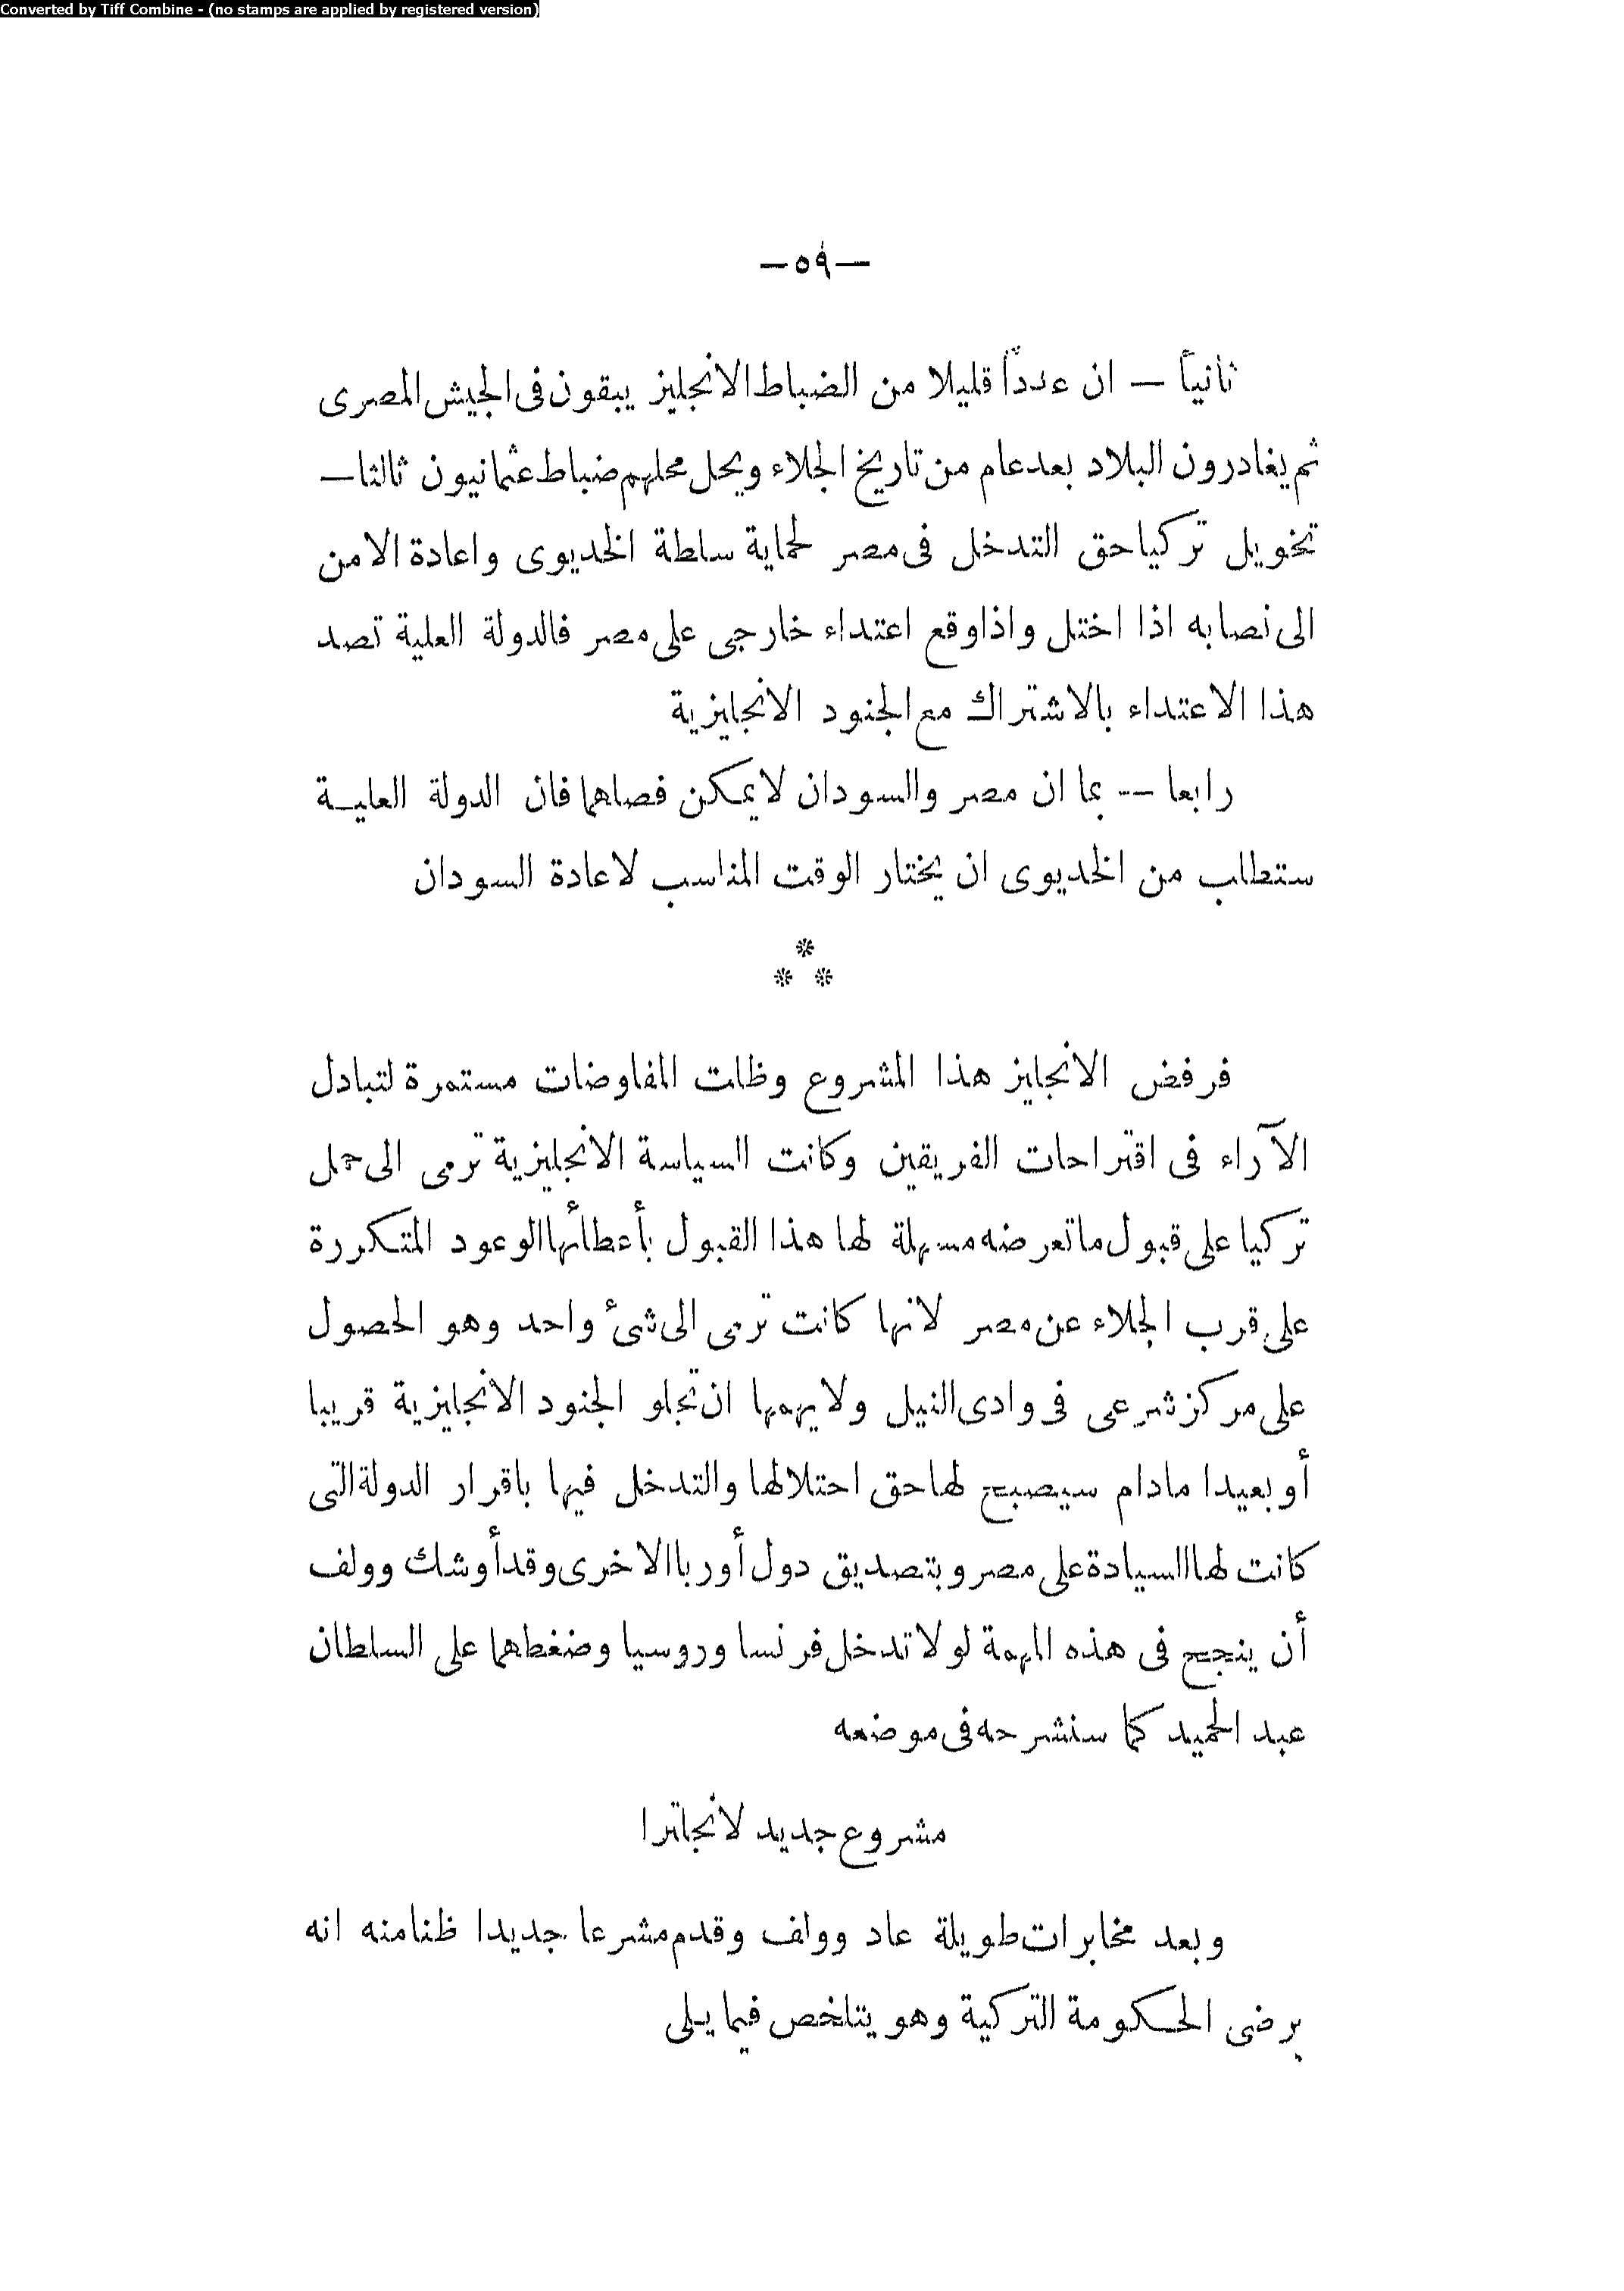 Converted by Tiff Combine - (no stamps are applied by registered version)
— ٥٩ —
ثانياً — ان عدداً قليلا من الضباط الانجليز يبقون فى الجيش المصرى
ثم يغادرون البلاد بعد عام من تاريخ الجلاء ويحل محلهم ضباط عثمانيون ثالثا —
تخويل تركيا حق التدخل فى مصر لحماية سلطة الخديوى واعادة الامن
الى نصابه اذا اختل واذا وقع اعتداء خارجى على مصر فالدولة العلية تصد
هذا الاعتداء بالاشتراك مع الجنود الانجليزية
رابعا -- بما ان مصر والسودان لا يمكن فصلهما فان الدولة العليـة
ستطلب من الخديوى ان يختار الوقت المناسب لاعادة السودان
*
* *
فرفض الانجليز هذا المشروع وظلت المفاوضات مستمرة لتبادل
الآراء فى اقتراحات الفريقين وكانت السياسة الانجليزية ترمى الى حمل
تركيا على قبول ما تعرضه مسهلة لها هذا القبول بأعطائها الوعود المتكررة
على قرب الجلاء عن مصر لانها كانت ترمى الى شئ واحد وهو الحصول
على مركز شرعى فى وادى النيل ولا يهمها ان تجلو الجنود الانجليزية قريبا
أو بعيدا مادام سيصبح لها حق احتلالها والتدخل فيها باقرار الدولة التى
كانت لها السيادة على مصر وبتصديق دول أوربا الاخرى وقد أوشك وولف
أن ينجح فى هذه المهمة لولا تدخل فرنسا وروسيا وضغطهما على السلطان
عبد الحميد كما سنشرحه فى موضعه
مشروع جديد لانجلترا
وبعد مخابرات طويلة عاد وولف وقدم مشرعا جديدا ظنا منه انه
يرضى الحكومة التركية وهو يتلخص فيما يـلى